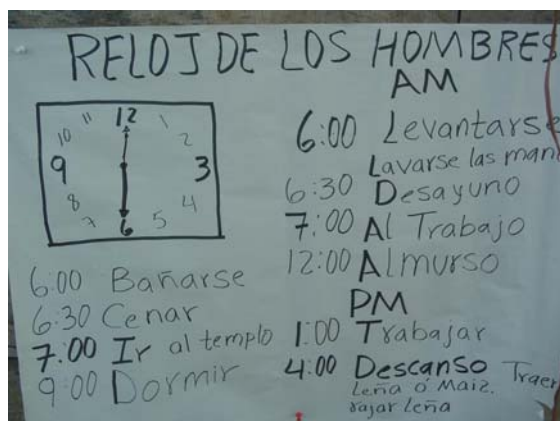 RELOJ DE LOS HOMBRES
AM
12
11 1
10 2
9 3
8 4
7 5
6
6:00 Levantarse
Lavarse las man
6:30 Desayuno
7:00 Al Trabajo
12:00 Almurso
PM
1:00 Trabajar
4:00 Descanso Traer
Leña ó Maiz.
rajar leña
6:00 Bañarse
6:30 Cenar
7:00 Ir al templo
9:00 Dormir